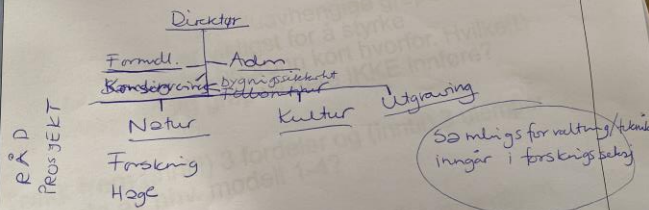 Direktør
Formidl. Adm
Konservering bygningssikkerhet
Natur Kultur Utgraving
Forskning
Hage
RÅD
PROSJEKT
Samlingsforvaltning/teknikk
inngår i forskningsseksj